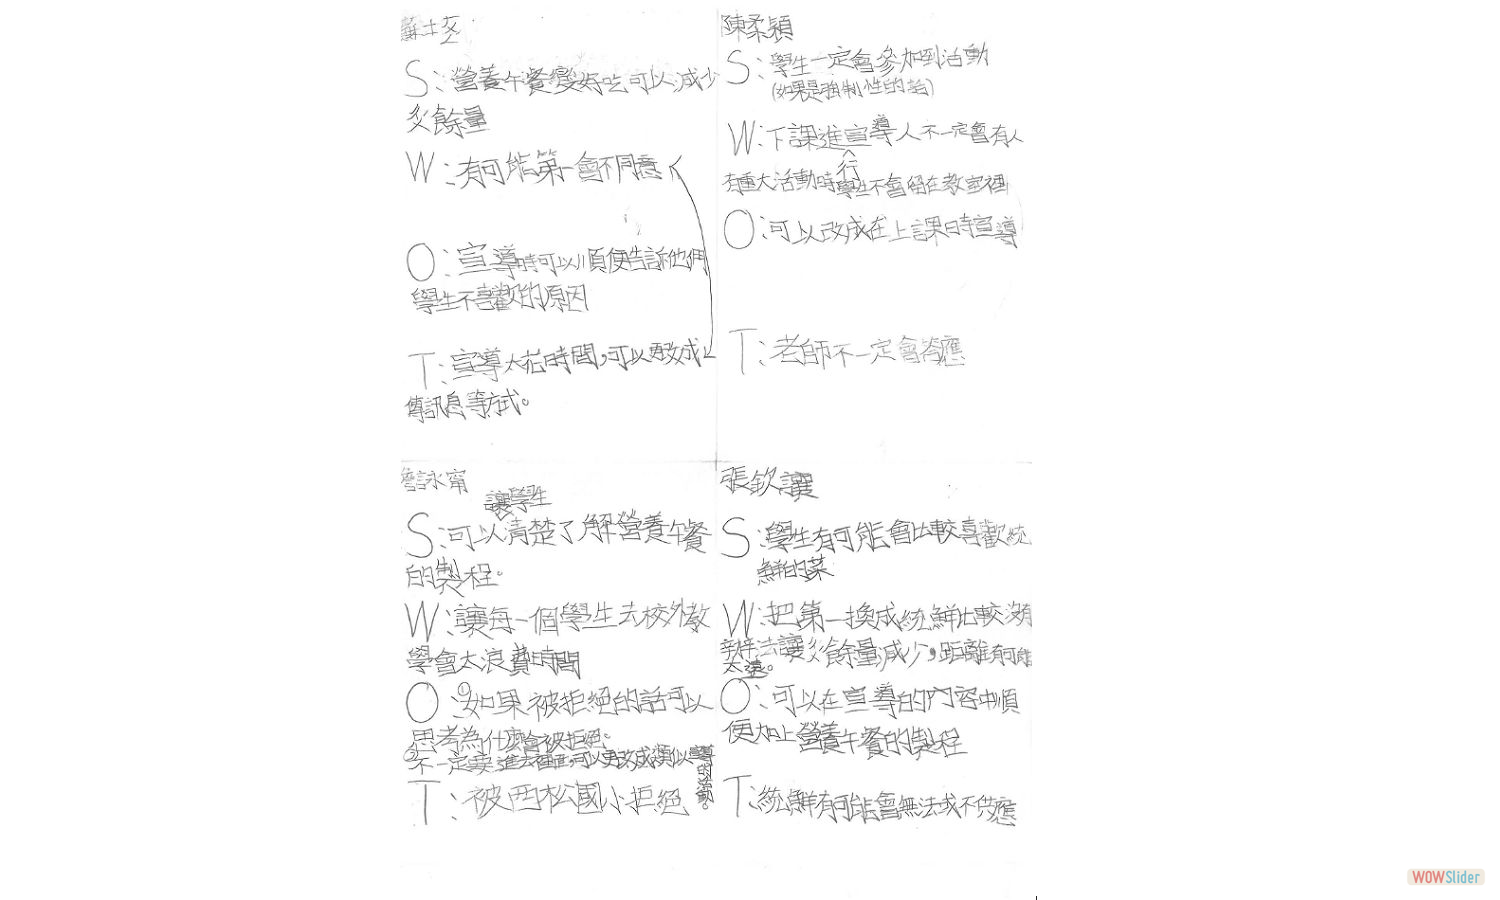 S:營養午餐變好吃可以減少
災餘量
W:有可能第一會不同意
O:宣導時可以順便告訴他們
學生不喜歡的原因
T:宣導太花時間,可以更改成
傳訊息等方式。
陳柔穎
S:學生一定會參加到活動
(如果是強制性的話)
W:下課進行宣導人不一定會有人
有重大活動時學生不會留在教室裡
O:可以改成在上課時宣導
T:老師不一定會答應
詹詠甯
S:可以讓學生清楚了解營養午餐
的製程。
W:讓每一個學生去校外教
學會太浪費時間
O:①如果被拒絕的話可以
思考為什麼會被拒絕。
②不一定要進去裡面,可以更改成類似宣導的活動。
T:被西松國小拒絕
張欽讓
S:學生有可能會比較喜歡統
鮮的菜
W:把第一換成統鮮比較沒有
辦法讓災餘量減少,距離有可能
太遠。
O:可以在宣導的內容中順
便加上營養午餐的製程
T:統鮮有可能會無法或不供應
WOWSlider